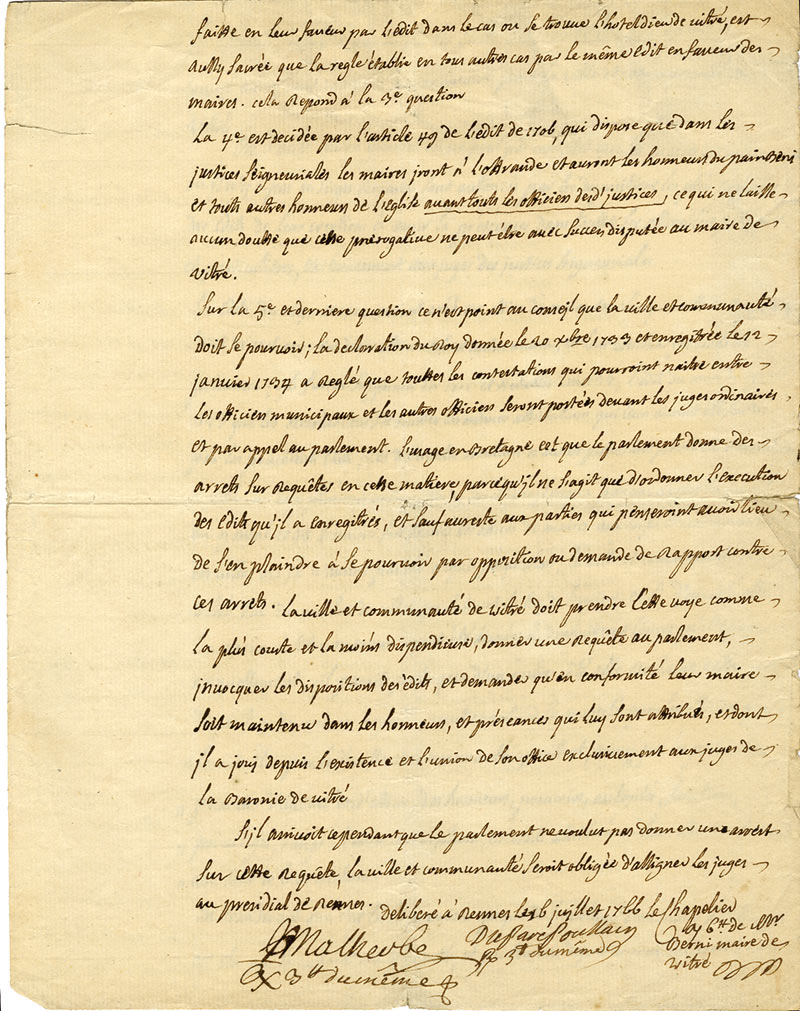 faitte en leur faveur par l'édit dans le cas ou se trouve l'hoteldieu de vitré, est
aussy sacrée que la regle établie en tous autres cas par le même edit en faveur des
maires. cela repond à la 3e question
La 4e est decidée par l'article 49 de l'édit de 1706, qui dispose que dans les
justices seigneuriales les maires jront à l'offrande et auront les honneurs du pain beni
et touts autres honneurs de l'eglise avant touts les officiers desd' justices, ce qui ne laisse
aucun doutte que cette prerogative ne peut être avec succes disputée au maire de
vitré.
Sur la 5e et derniere question ce n'est point au consejl que la ville et communauté
doit se pourvoir; la declaration du Roy donnée le 20 xbre 1733 et enregistrée le 12
janvier 1734 a reglé que touttes les contestations qui pourroint naitre entre
les officiers municipaux et les autres officiers seront portées devant les juges ordinaires
et par appel au parlement. L'usage en Bretagne est que le parlement donne des
arrets sur requêtes en cette matiere, parcequ'jl ne s'agit que d'ordonner l'execution
des edits qu'jl a enregitrés, et sauf au reste aux parties qui penseroint avoir lieu
de s'en plaindre à se pourvoir par opposition ou demande de rapport contre
ces arrets. La ville et communauté de vitré doit prendre cette voye comme
la plus courte et la moins dispendieuse, donner une requête au parlement,
jnvocquer les dispositions des édits, et demander qu'en conformité leur maire
soit maintenu dans les honneurs, et préseances qui luy sont attribués, et dont
jl a jouj depuis l'existence et l'union de son office exclusivement aux juges de
la Baronie de vitré
S'jl arrivoit cependant que le parlement ne voulut pas donner un arrest
sur cette requête, la ville et communauté seroit obligée d'assigner les juges
au presidial de rennes. deliberé à Rennes le 16 juillet 1766 Le Chapelier
Malherbe Duparc Poullain
3 tt du même 3 tt du même
6 tt de Mr
Derni maire de
vitré